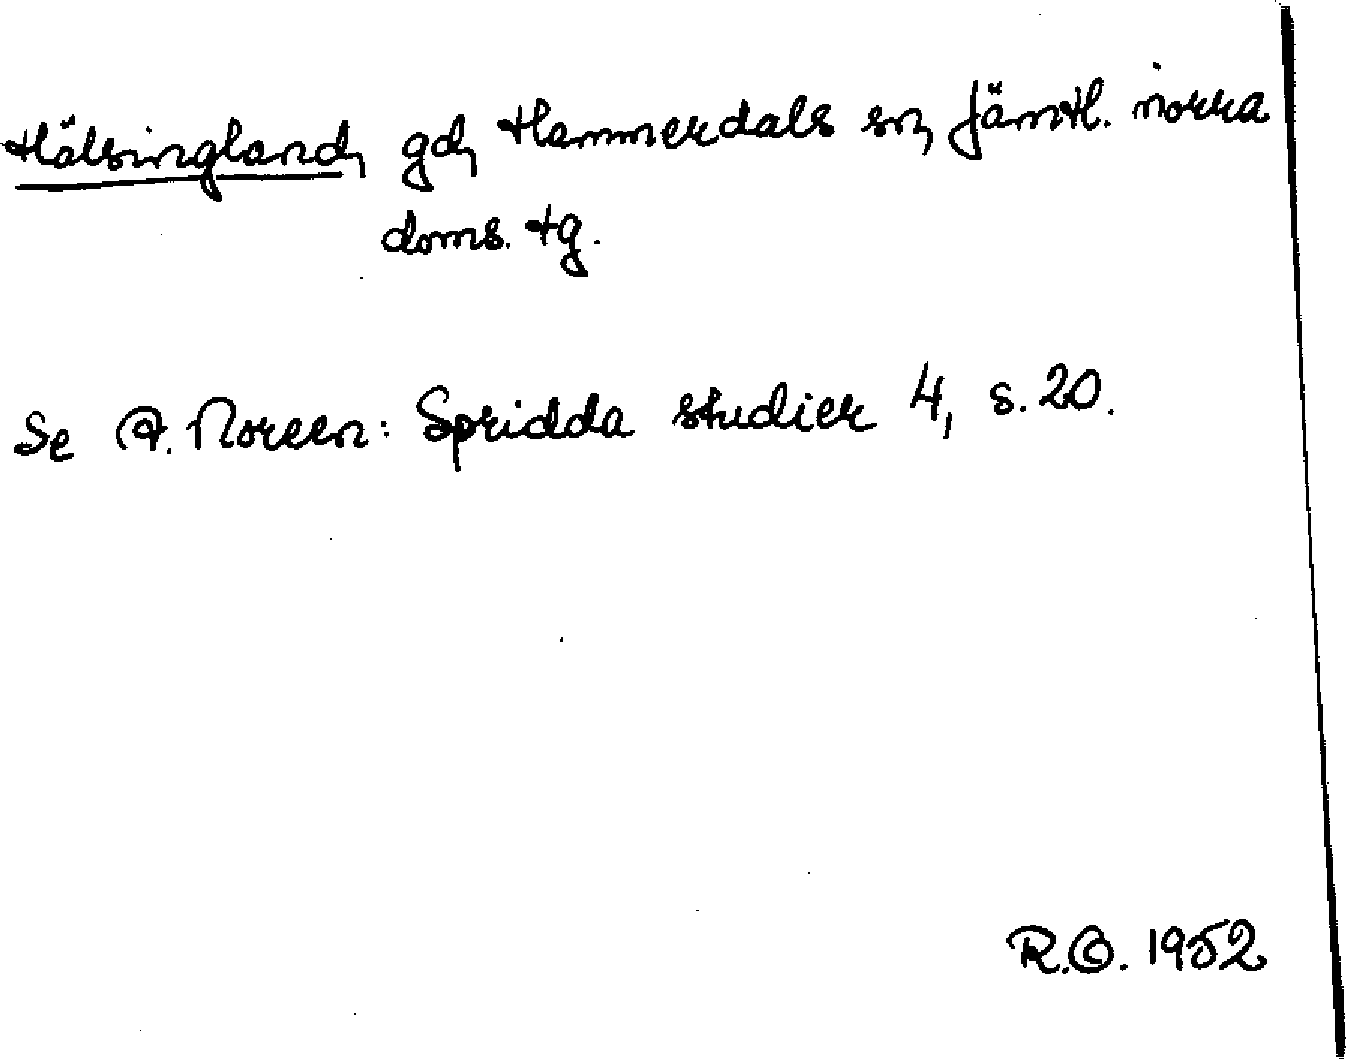 Hälsingland, gd, Hammerdals sn, Jämtl. norra
doms. tg.
Se A. Noreen: Spridda studier 4, s. 20.
R.O. 1952